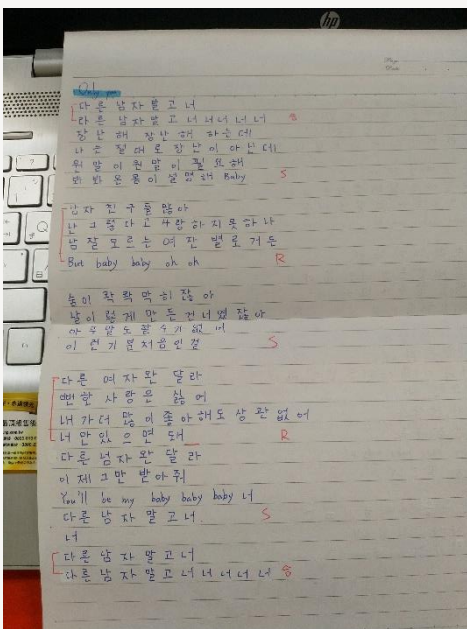 hp
Only you
다른 남자 말고 너
다른 남자 말고 너 너 너 너 너 合
장난해 장난해 하는데
나는 절대로 장난이 아닌데
뭔 말이 뭔 말이 필요해
온몸이 설명해 Baby S
남자 친구들 많아
난 그렇다고 사랑하지 못하나
남 잘 모르는 여잔 별로거든
But baby baby oh oh R
숨이 콱콱 막히잖아
날 이렇게 만든 건 너였잖아
아무말도 할 수가 없어
이런 기분 처음인걸 S
다른 여자완 달라
뻔할 사랑은 싫어
내가 더 많이 좋아해도 상관없어
너만 있으면 돼 R
다른 남자완 달라
이제 그만 받아줘
You'll be my baby baby baby 너
다른 남자 말고 너 S
너
다른 남자 말고 너
다른 남자 말고 너 너 너 너 너 合